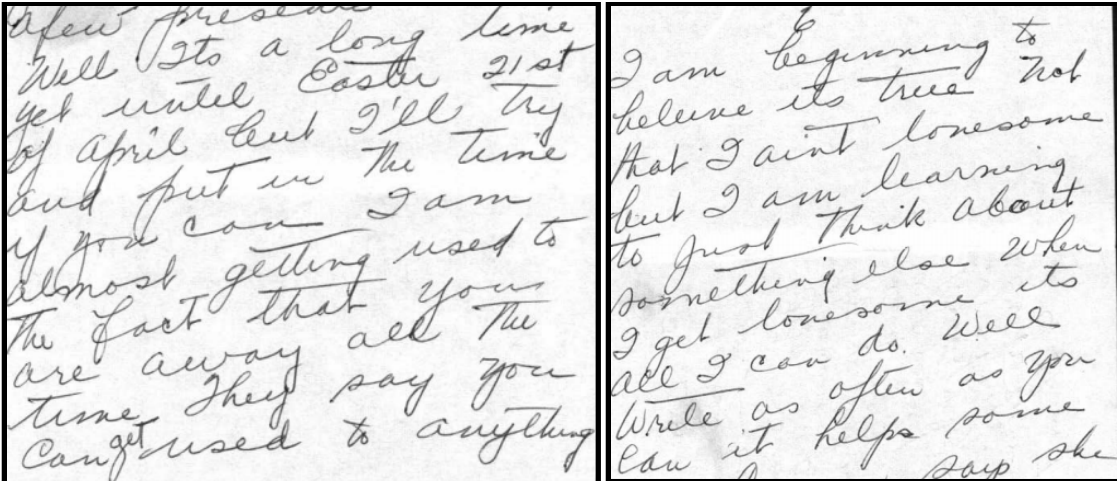 a few presents
Well Its a long time
yet until Easter 21st
of April but I'll try
and put in the time
if you can I am
almost getting used to
the fact that you
are away all the
time. They say you
can get used to anything
6
I am beginning to
beleive its true not
that I aint lonesome
but I am learning
to just think about
something else when
I get lonesome its
all I can do. Well
Write as often as you
can it helps some
say she